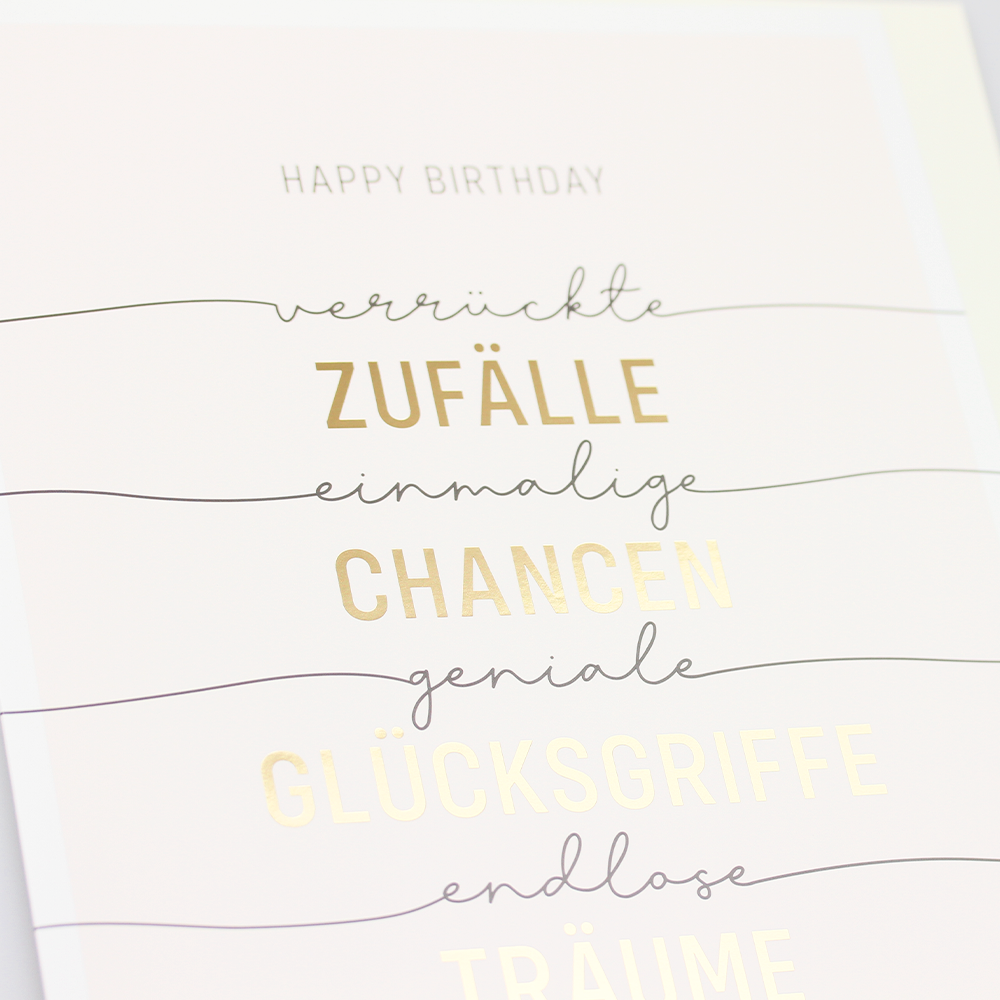 HAPPY BIRTHDAY
verrückte
ZUFÄLLE
einmalige
CHANCEN
geniale
GLÜCKSGRIFFE
endlose
TRÄUME